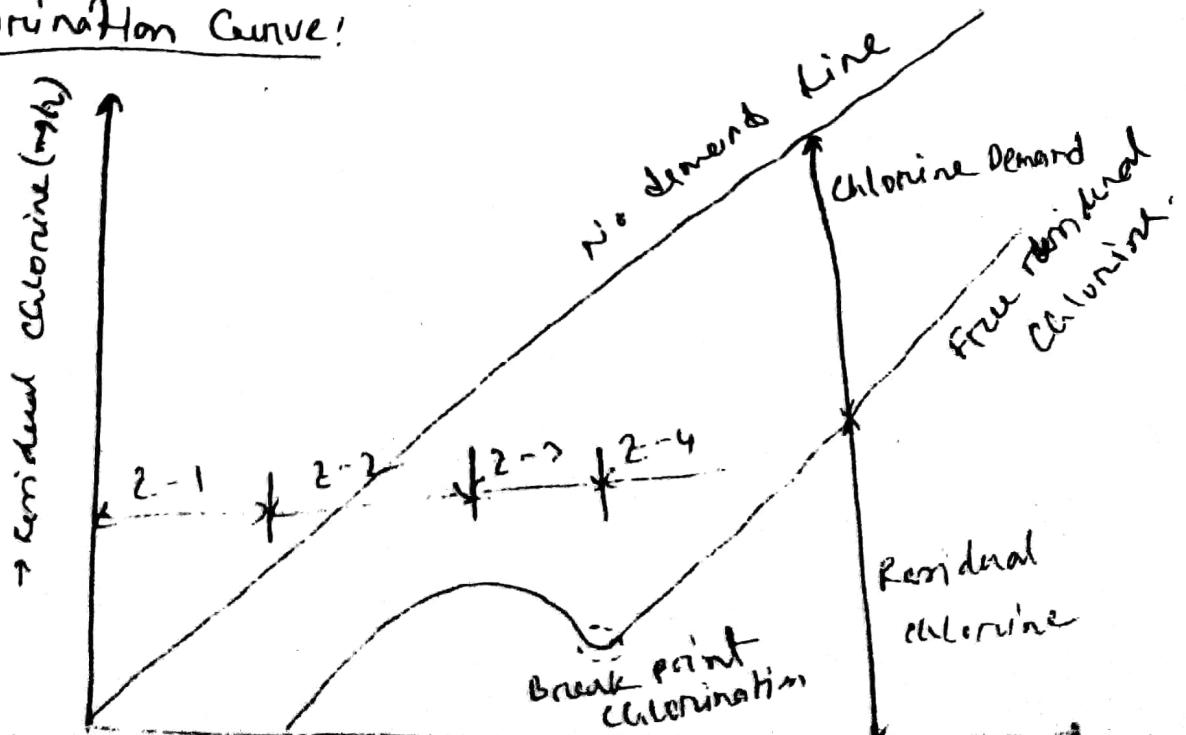 rination Curve!
→ Residual Chlorine (mg/L)
No demand Line
Chlorine Demand
Free residual
Chlorine.
Z-1
Z-2
Z-3
Z-4
Residual
chlorine
Break point
Chlorination